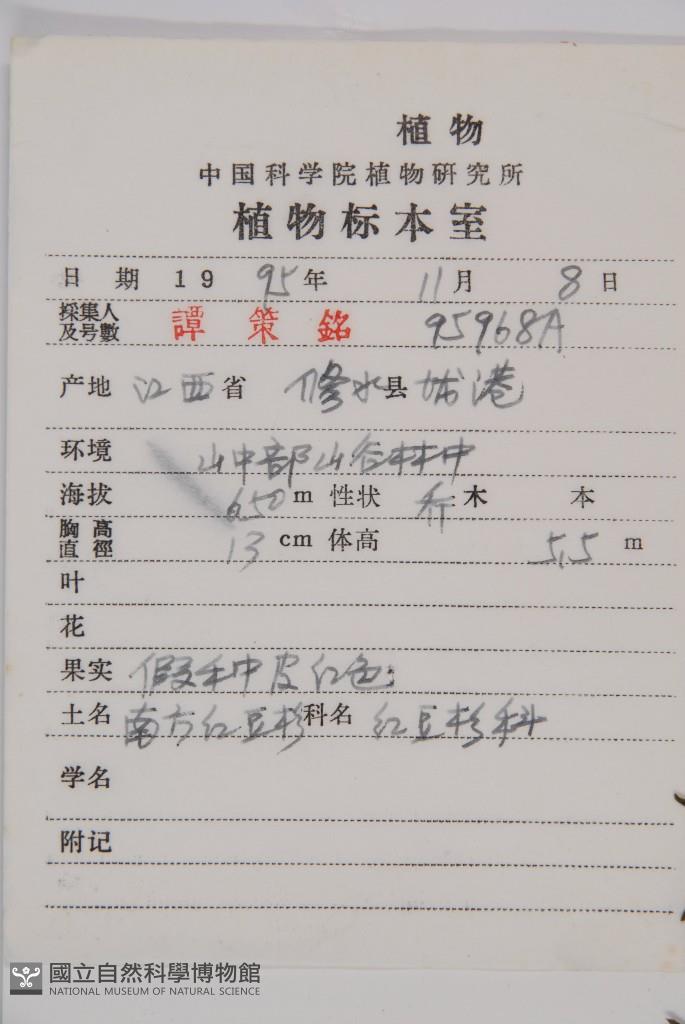 植物
中国科学院植物研究所
植物标本室
日期 1995年 11月 8日
採集人及号數 譚策銘 95968A
产地 江西省 修水县 城港
环境 山中部山谷林中
海拔 650 m 性状 乔木 本
胸高直徑 13 cm 体高 5.5 m
叶
花
果实 假种皮红色;
土名 南方红豆杉 科名 红豆杉科
学名
附记
國立自然科學博物館
NATIONAL MUSEUM OF NATURAL SCIENCE